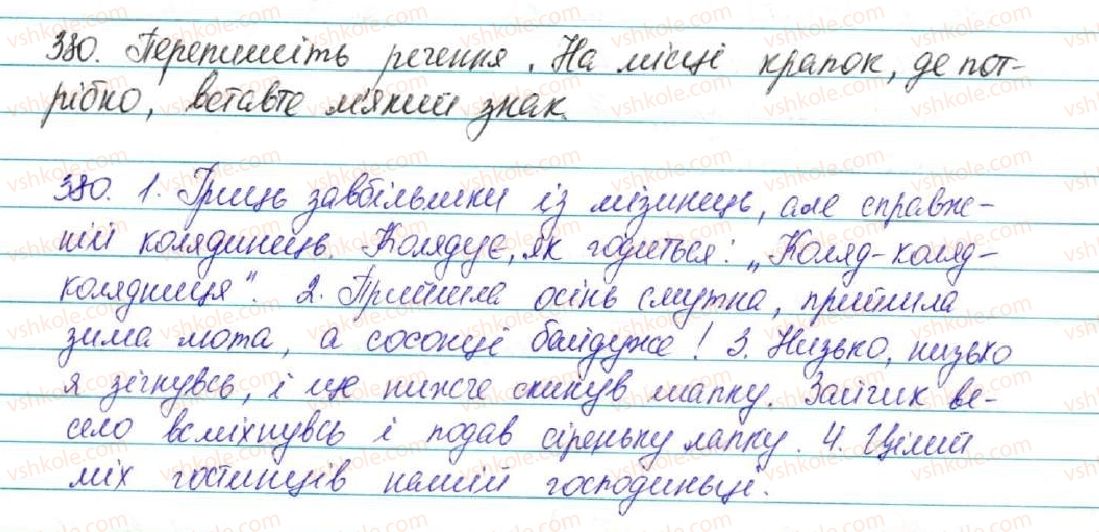 380. Перепишіть речення. На місці крапок, де пот-
рібно, вставте м'який знак.
380. 1. Гриць завбільшки із мізинець, але справж-
ній колядинець. Колядує, як годиться: „Коляд-коляд-
колядниця". 2. Прийшла осінь смутна, прийшла
зима люта, а сосонці байдуже! 3. Низько, низько
я зігнувсь, і ще нижче скинув шапку. Зайчик ве-
село всміхнувсь і подав сіреньку лапку. 4. Цілий
міх гостинців нашій господиньці.